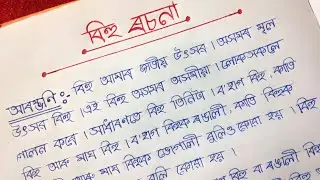 বিহু ৰচনা
আৰম্ভণি :- বিহু আমাৰ জাতীয় উৎসৱ। অসমৰ মূল
উৎসৱ বিহু। এই বিহু অসমৰ অসমীয়া লোকসকলে
পালন কৰে। সাধাৰণতে বিহু তিনিটা। ব'হাগ বিহু, কাতি
বিহু আৰু মাঘ বিহু। ব'হাগ বিহুক ৰঙালী, কাতি বিহুক
মাঘ বিহুক ভোগালী বুলিও কোৱা হয়। বিহু
বিহু বা ৰঙালী বিহু
বুলি কোৱা হয়।